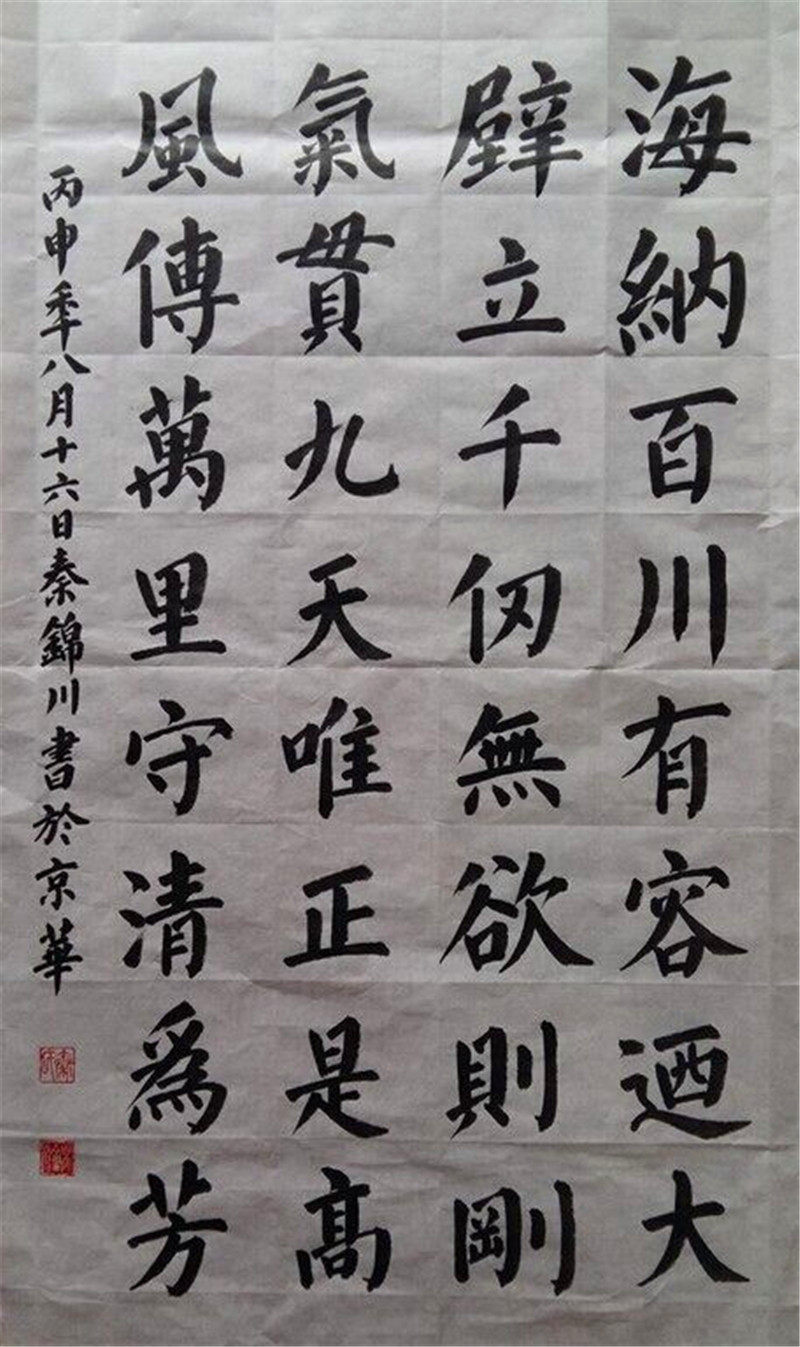 海納百川有容迺大
壁立千仞無欲則剛
氣貫九天唯正是高
風傳萬里守清為芳
丙申年八月十六日秦錦川書於京華